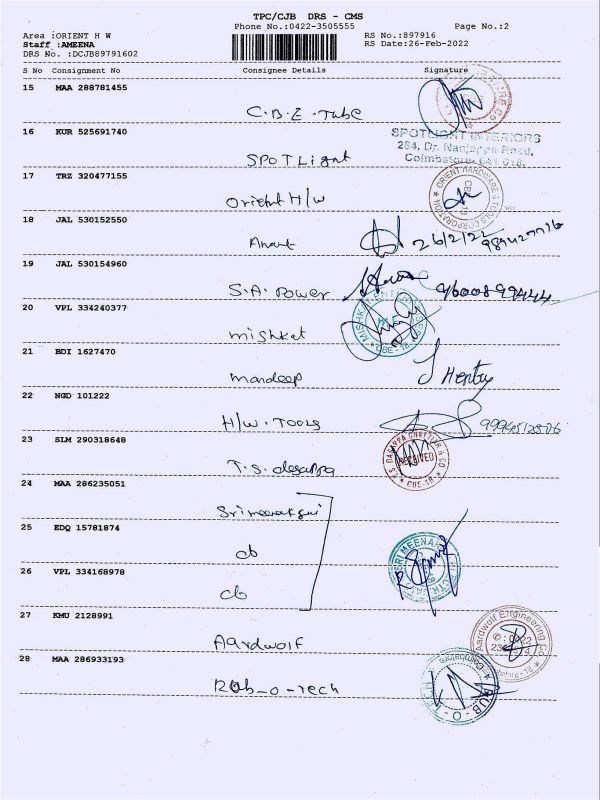 TPC/CJB DRS - CMS
Phone No.:0422-3505555 Page No.:2
Area :ORIENT H W RS No.:897916
Staff :AMEENA RS Date:26-Feb-2022
DRS No. :DCJB89791602
S No Consignment No Consignee Details Signature
15 MAA 288781455
C.B.E. Tube
16 KUR 525691740
SPOTLIGHT INTERIORS
284, Dr. Nanjappa Road,
Coimbatore-641 018.
SPOTLight
17 TRZ 320477155
Orient H/w
ORIENT HARDWARE & TOOLS CORPORATION
CBE-18
18 JAL 530152550
Anant 26/2/22
19 JAL 530154960
S.A. Power 9600899444
20 VPL 334240377
mishkat
MISHKAT ENTERPRISES
CBE-18
21 BDI 1627470
mandeep J Henty
22 NGD 101222
H/W. Tools
23 SLM 290318648
T.S. dasappa
RECEIVED
CBE-18
24 MAA 286235051
25 EDQ 15781874
cb
26 VPL 334168978
cb
27 KMU 2128991
Aardwolf
Aardwolf Engineering Co
28 MAA 286933193
Rub-o-tech